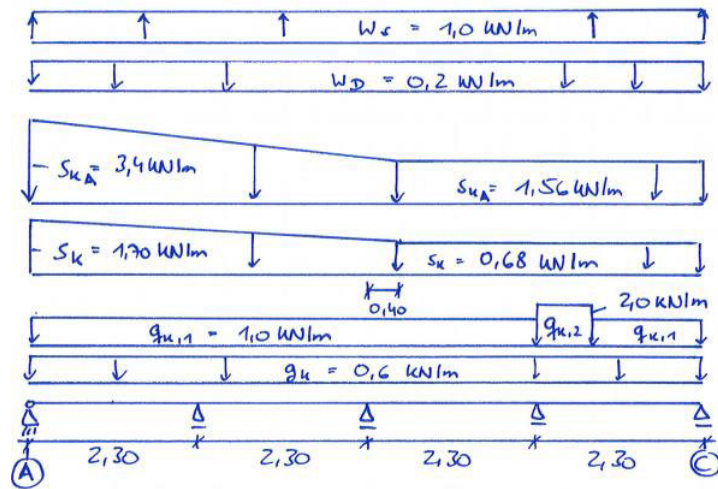 Ws = 1,0 kN/m
WD = 0,2 kN/m
SKA = 3,4 kN/m
SKA = 1,56 kN/m
SK = 1,70 kN/m
SK = 0,68 kN/m
0,40
2,0 kN/m
qK,1 = 1,0 kN/m
qK,2
qK,1
gK = 0,6 kN/m
2,30
2,30
2,30
2,30
A
C